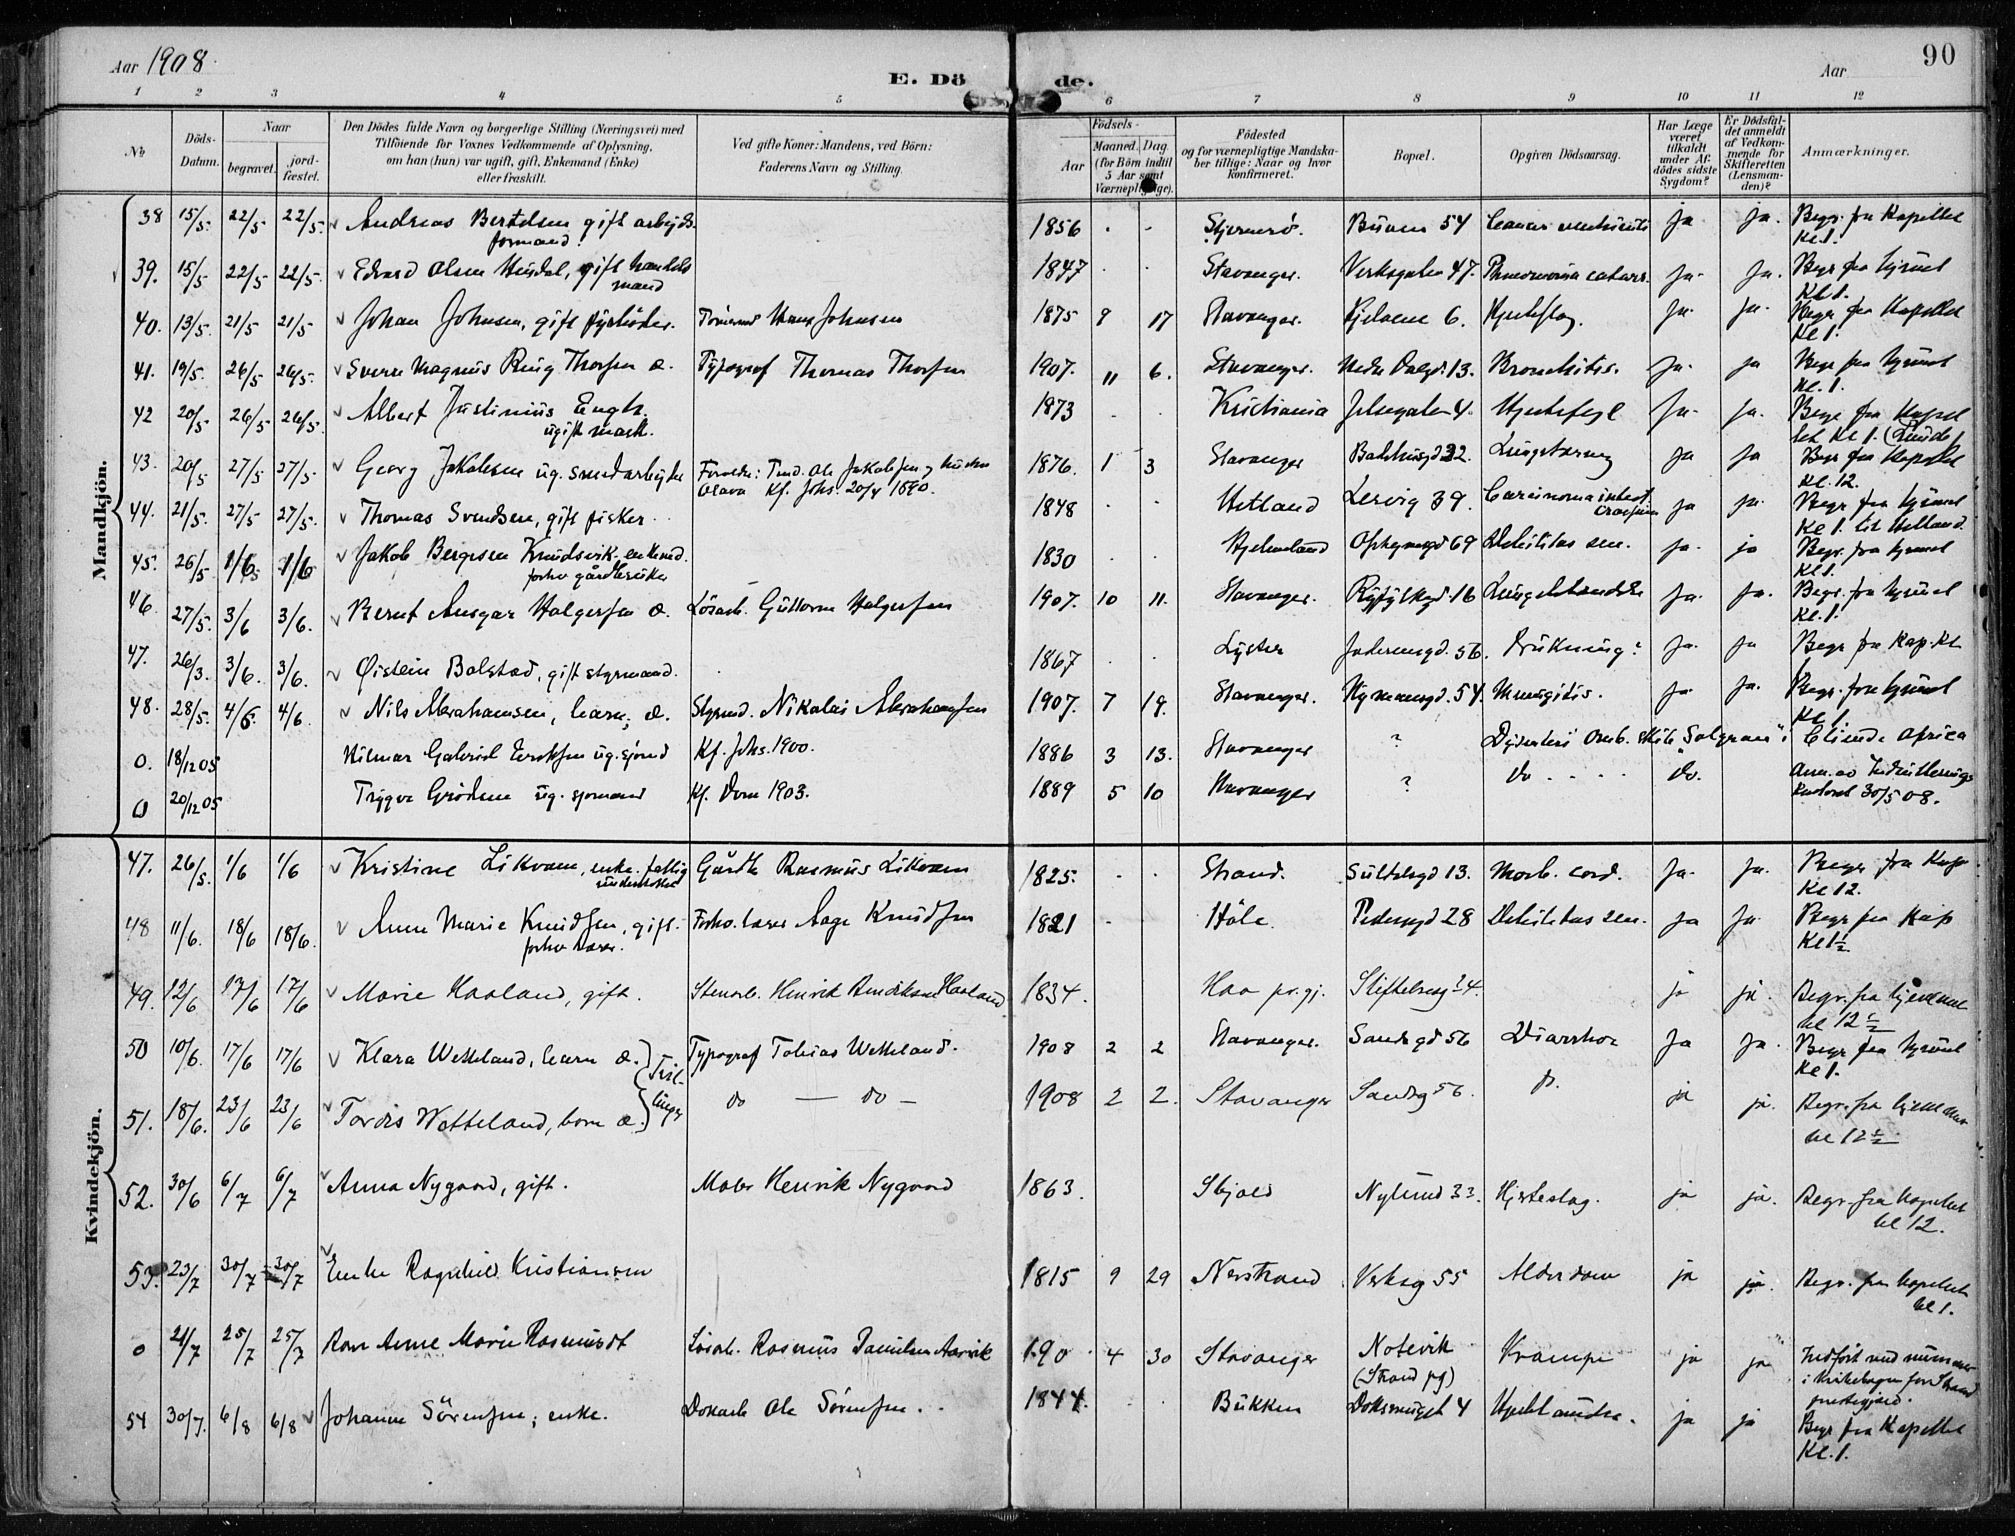 Aar 1908.
E. Dö de.
Aar
90
1 2 3 4 5 6 7 8 9 10 11 12
No
Döds-Datum.
Naar
begravet.
jord-fæstet.
Den Dödes fulde Navn og borgerlige Stilling (Næringsvei) med
Tilföiende for Voxnes Vedkommende af Oplysning,
om han (hun) var ugift, gift, Enkemand (Enke)
eller fraskilt.
Ved gifte Koner: Mandens, ved Börn:
Faderens Navn og Stilling.
Födsels-
Aar
Maaned. Dag
(for Börn indtil
5 Aar samt
Værnepligtige).
Födested
og for værnepligtige Mandska-
ber tillige: Naar og hvor
konfirmeret.
Bopæl.
Opgiven Dödsaarsag.
Har Læge
været
tilkaldt
under Af-
dödes sidste
Sygdom?
Er Dödsfal-
det anmeldt
af Vedkom-
mende for
Skifteretten
(Lensman-
den)?
Anmærkninger.
Mandkjön.
38 15/5. 22/5 22/5. Andreas Bertelsen gift arbejds formand 1856 Stjernerö. Buven 54 Cancer ventriculi ja ja. Begr. fra Kapellet Kl 1.
39. 15/5 22/5 22/5 Edvard Olsen gift handels mand 1847 Stavanger. Verksgaten 47. Pneumonia catarr. ja. ja. Begr fra hjemmet Kl 1.
40. 13/5. 21/5 21/5 Johan Johnsen, gift fyrböder. Hans Johnsen 1875 9 17 Stavanger. 6. Hjerteslag. ja. ja. Begr fra Kapellet Kl 1.
41. 19/5. 26/5 26/5. Sverre Magnus Ring Thorsen æ. Typograf Thomas Thorsen 1907. 11 6. Stavanger. Nedre Dalgd. 13. Bronchitis. ja. ja Begr fra hjemmet Kl. 1.
42 20/5 26/5 26/5. Albert Justinius ugift 1873 Kristiania Jelsegaten 4. Hjertefejl ja. ja. Begr fra Kapel let Kl 1. (Lunde)
43. 20/5 27/5 27/5. Georg Jakobsen ug. smedarbejder Forældre: Ole Jakobsen og hustru Olava Kf. Johs. 20/4 1890. 1876. 1 3 Stavanger 32. Lungetæring ja ja Begr fra Kapellet Kl. 12.
44. 21/5. 27/5 27/5. Thomas Svendsen, gift fisker. 1848 Hetland Lervig 39. Carcinoma intest. ja ja. Begr fra hjemmet Kl 1. til Hetland.
45. 26/5 1/6 1/6 Jakob Bergesen Knudsvik enkemd. forhv gårdbruker 1830 Hjelmeland 69 Debilitas sen. ja. ja Begr. fra hjemmet Kl 1.
46. 27/5. 3/6 3/6. Bernt Ansgar Holgersen æ. Lösarb. Guttorm Holgersen 1907. 10 11. Stavanger. Ryfylkegd. 16 Lungebetændelse ja. ja. Begr. fra hjemmet Kl. 1.
47. 26/3. 3/6. 3/6. Øistein Bolstad, gift styrmand. 1867 Lyster Jaderensgd. 56. Drukning? ja. ja Begr fra Kap. Kl 1
48. 28/5. 4/6 4/6. Nils Abrahamsen, barn, æ. Styrmd. Nikolai Abrahamsen 1907. 7 19. Stavanger. Nymansgd. 54. Meningitis. ja. ja. Begr. fra hjemmet Kl 1.
0. 18/12 05 Hilmar Gabriel Eriksen ug. sjömd Kf. Johs. 1900. 1886 3 13. Stavanger ? Dysenteri omb. skib "Solgran" i Africa
0 20/12 05 Trygve Grödem ug. sjömand Kf. Dom 1903. 1889 5 10 Stavanger ? do do. Anm. av 30/5 08.
Kvindekjön.
47. 26/5. 1/6 1/6 Kristine Likvam, enke. fattig understöttet Gårdbr. Rasmus Likvam 1825. Strand. 13. Morb. cord. ja. ja. Begr fra Kap. Kl 12.
48 11/6. 18/6 18/6. Anne Marie Knudsen, gift. forhv lærer. Forhv. lærer Aage Knudsen 1821 Höle Pedersgd 28 Debilitas sen. ja ja. Begr fra Kap Kl 1½
49. 12/6 17/6 17/6 Marie Haaland, gift. Stenarb. Henrik Haaland 1834. Haa pr.gj. 24. ja ja. Begr. fra hjemmet kl 12½
50 10/6. 17/6 17/6 Klara Wetteland, barn æ. Typograf Tobias Wetteland. 1908 2 2 Stavanger. Sandsgd 56 Diarrhoe ja ja. Begr fra hjemmet Kl 1.
51. 18/6. 23/6 23/6 Tordis Wetteland, barn æ. Tvil- linger do — do — 1908 2 2. Stavanger Sandsg 56. do. ja ja. Begr. fra hjemmet kl 12½
52. 30/6 6/7 6/7 Anna Nygaard, gift. Maler Henrik Nygaard 1863. Skjold Nylund 33. Hjerteslag. ja ja. Begr. fra kapellet kl 12.
53. 23/7 30/7 30/7 Enke Ragnhild Kristiansen 1815 9 29 Nerstrand Verksg 55 Alderdom ja ja. Begr. fra kapellet kl 1.
0 21/7 25/7 25/7 Barn Anne Marie Rasmusdt Lösarb. Rasmus Danielsen 190 4 30 Stavanger Notevik (Strand pg) Krampe ja ja Indfört med nummer i Kirkebogen for Strand prestegjeld.
54 30/7. 6/8 6/8 Johanne Sörensen, enke. Ole Sörensen. 1844. Bukken 4 ja ja Begr fra Kapellet Kl. 1.